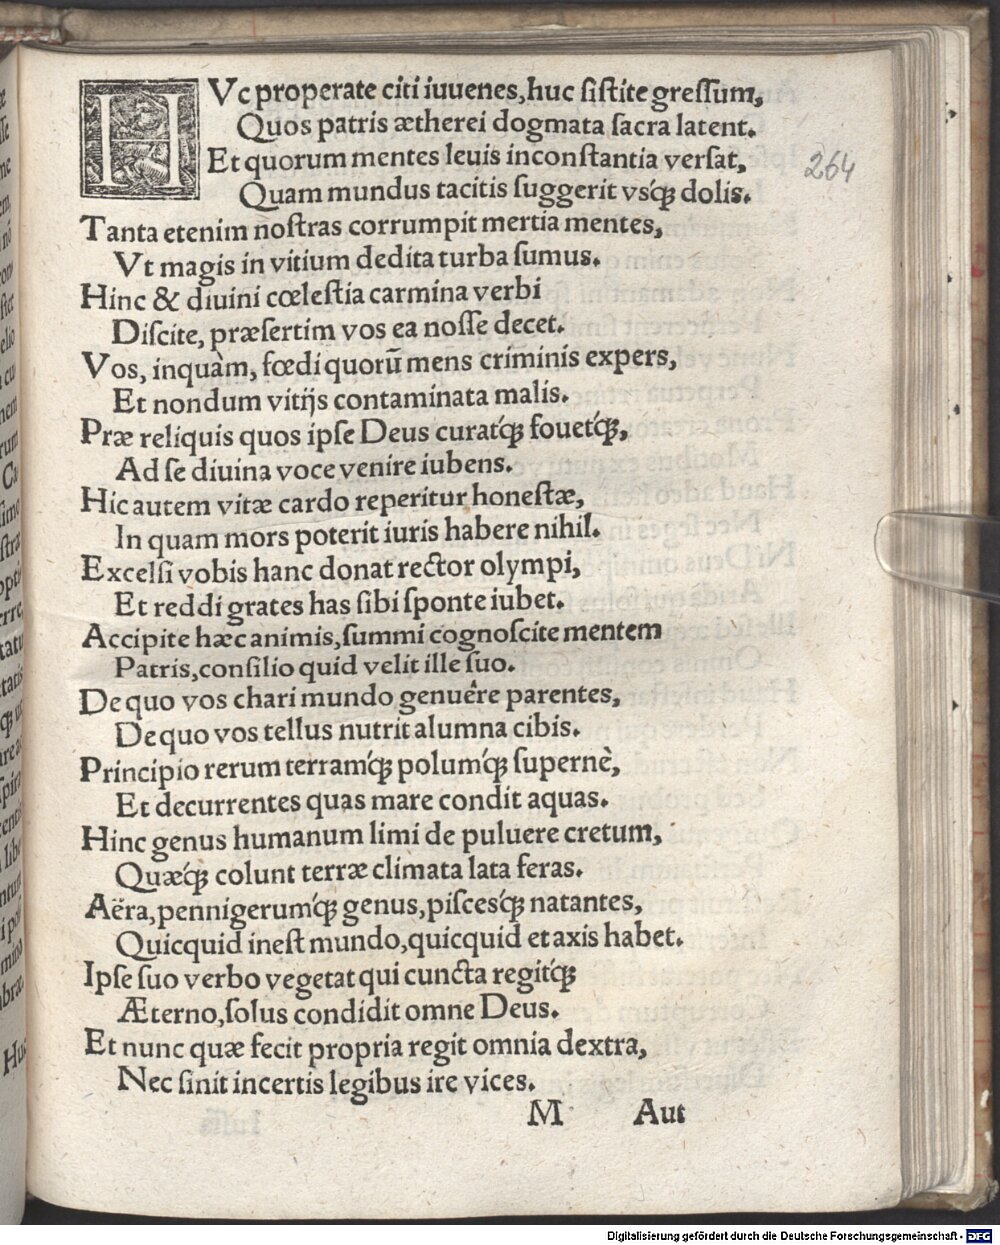 HVc properate citi iuuenes, huc ſiſtite greſſum,
Quos patris ætherei dogmata ſacra latent.
Et quorum mentes leuis inconſtantia verſat,
264
Quam mundus tacitis ſuggerit vsq́ꝫ dolis.
Tanta etenim noſtras corrumpit mertia mentes,
Vt magis in vitium dedita turba ſumus.
Hinc & diuini cœleſtia carmina verbi
Diſcite, præſertim vos ea noſſe decet.
Vos, inquàm, fœdi quorū mens criminis expers,
Et nondum vitijs contaminata malis.
Præ reliquis quos ipſe Deus curatq́ꝫ fouetq́ꝫ,
Ad ſe diuina voce venire iubens.
Hic autem vitæ cardo reperitur honeſtæ,
In quam mors poterit iuris habere nihil.
Excelſi vobis hanc donat rector olympi,
Et reddi grates has ſibi ſponte iubet.
Accipite hæc animis, ſummi cognoſcite mentem
Patris, conſilio quid velit ille ſuo.
De quo vos chari mundo genuêre parentes,
De quo vos tellus nutrit alumna cibis.
Principio rerum terramq́ꝫ polumq́ꝫ ſupernè,
Et decurrentes quas mare condit aquas.
Hinc genus humanum limi de puluere cretum,
Quæq́ꝫ colunt terræ climata lata feras.
Aëra, pennigerumq́ꝫ genus, piſcesq́ꝫ natantes,
Quicquid ineſt mundo, quicquid et axis habet.
Ipſe ſuo verbo vegetat qui cuncta regitq́ꝫ
Æterno, ſolus condidit omne Deus.
Et nunc quæ fecit propria regit omnia dextra,
Nec ſinit incertis legibus ire vices.
M Aut
Digitalisierung gefördert durch die Deutsche Forschungsgemeinschaft - DFG